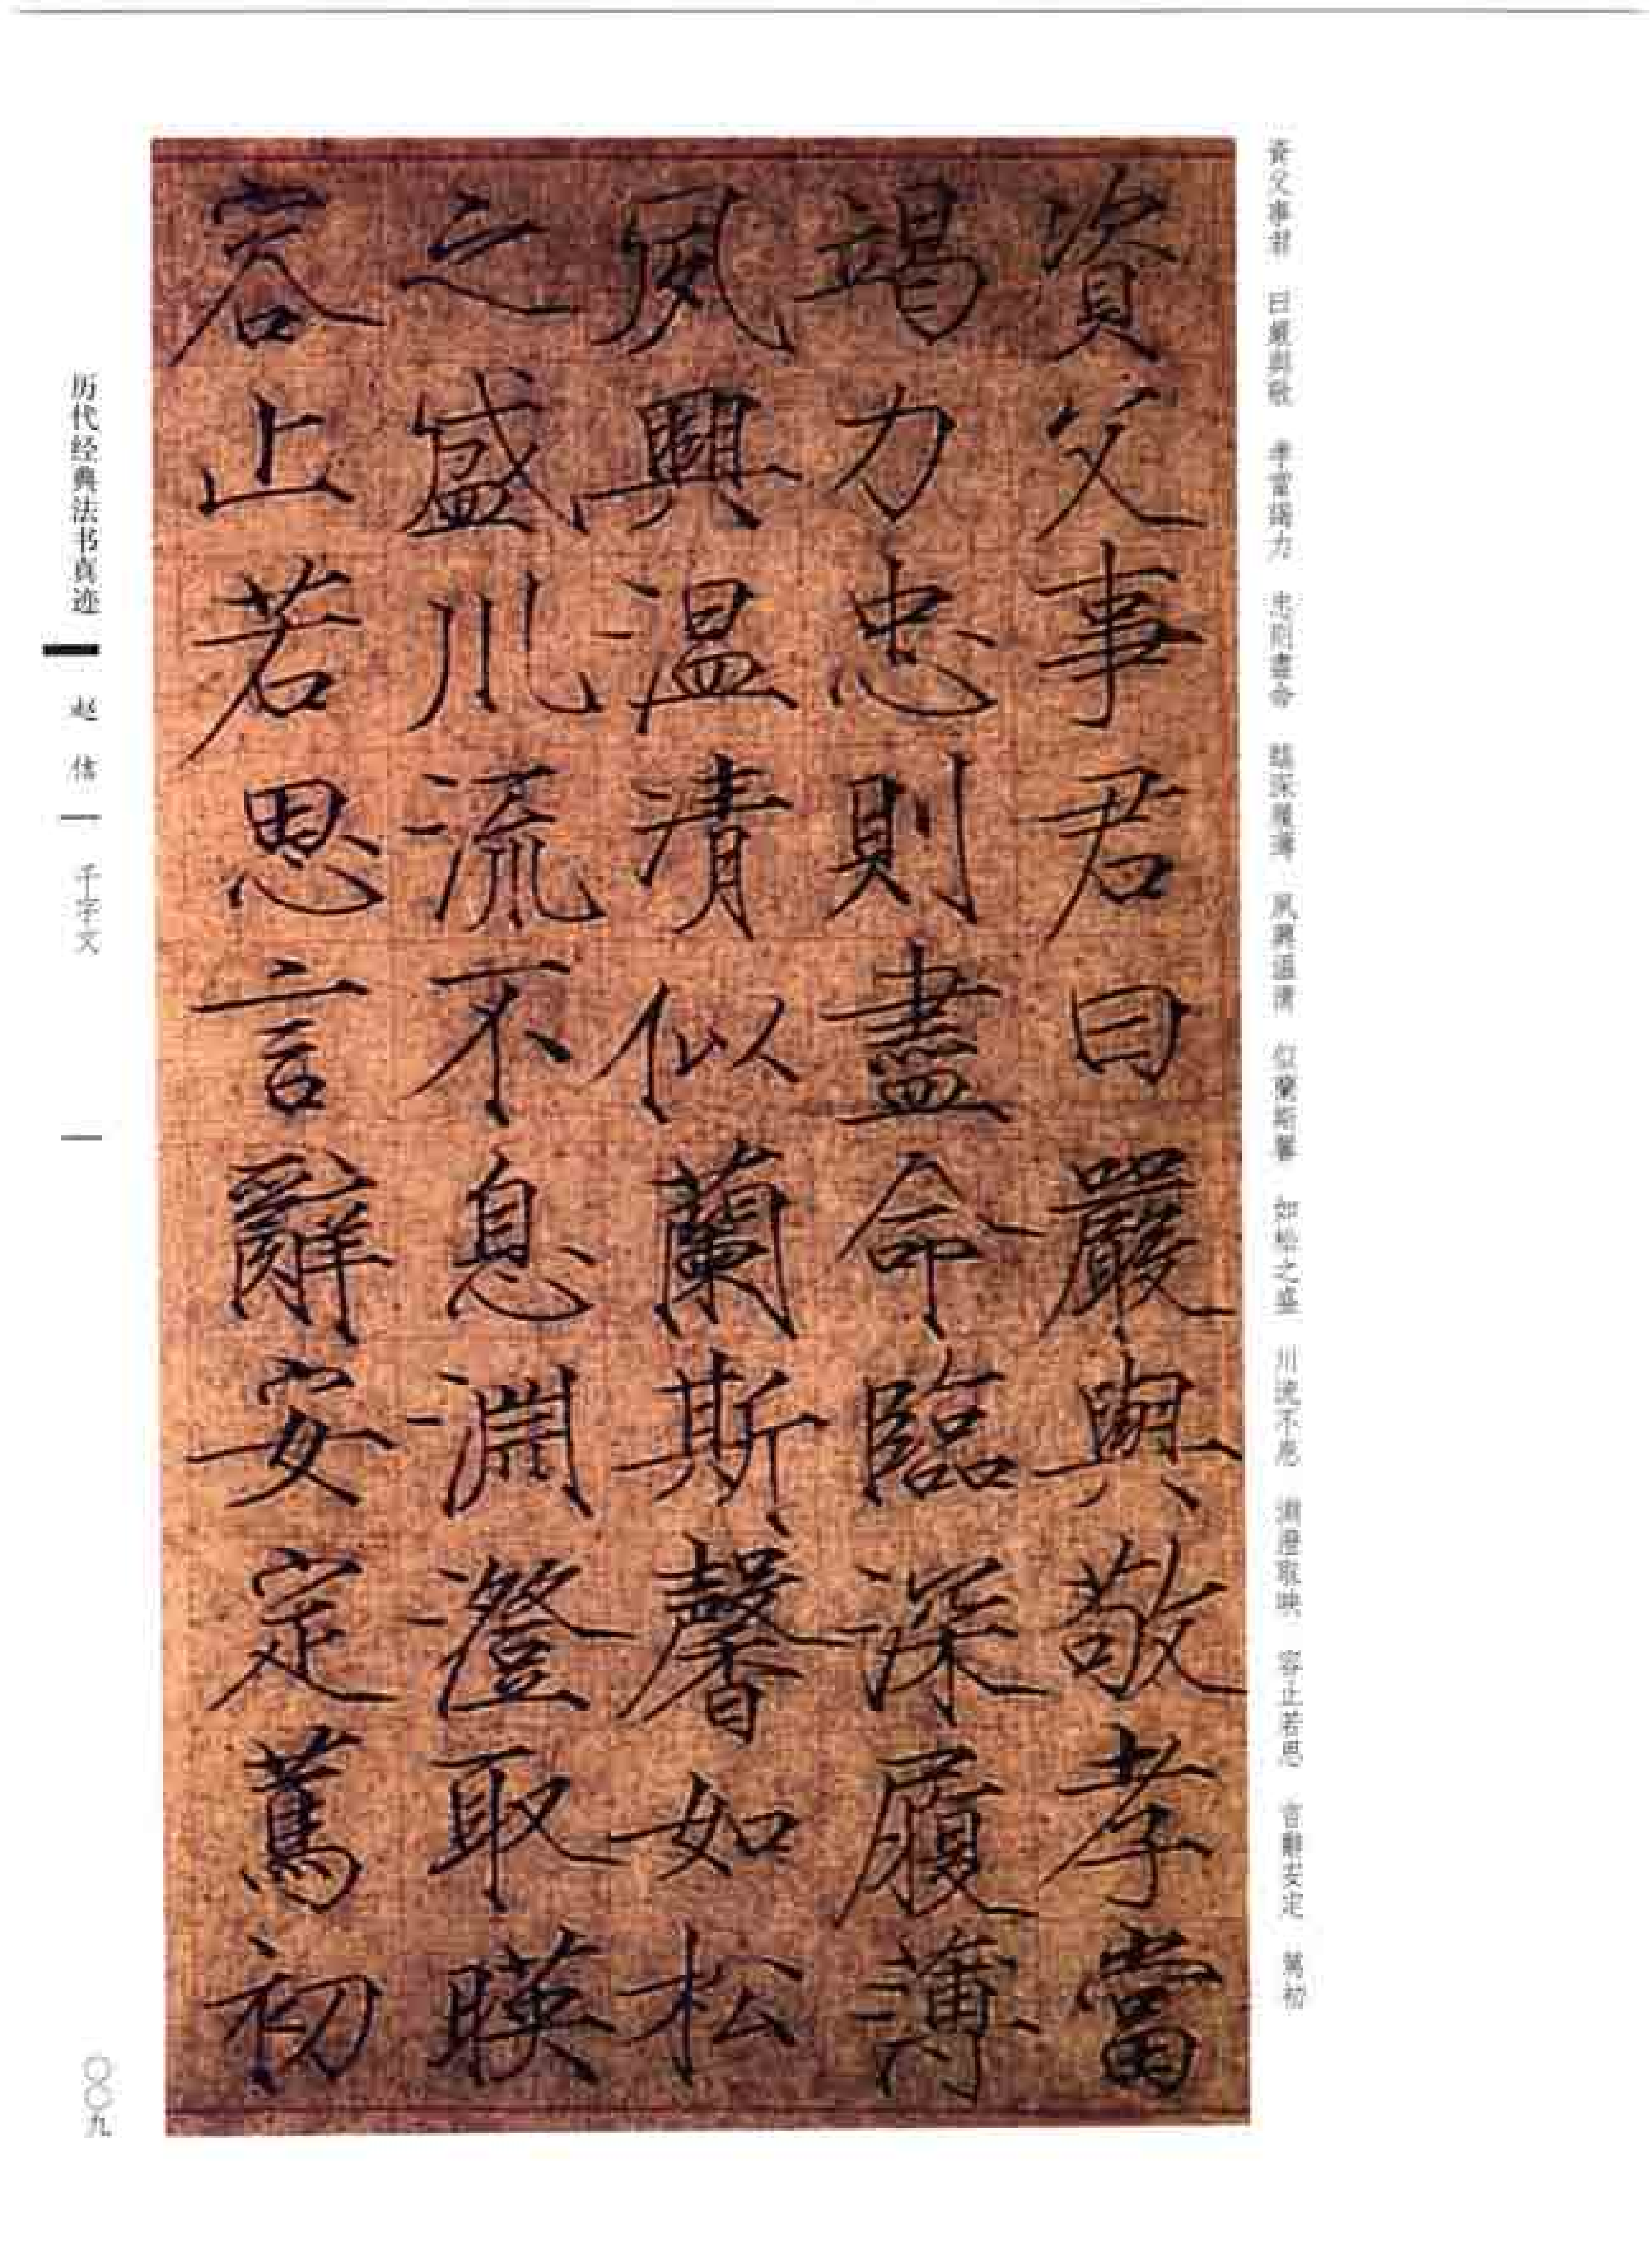 资父事君 曰嚴與敬 孝當竭力 忠則盡命 臨深履薄 夙興温凊 似蘭斯馨 如松之盛 川流不息 淵澄取映 容止若思 言辭安定 篤初
資父事君曰嚴與敬孝當
竭力忠則盡命臨深履薄
夙興温清似蘭斯馨如松
之盛川流不息淵澄取暎
容止若思言辭安定篤初
历代经典法书真迹
赵 信
千字文
〇〇九